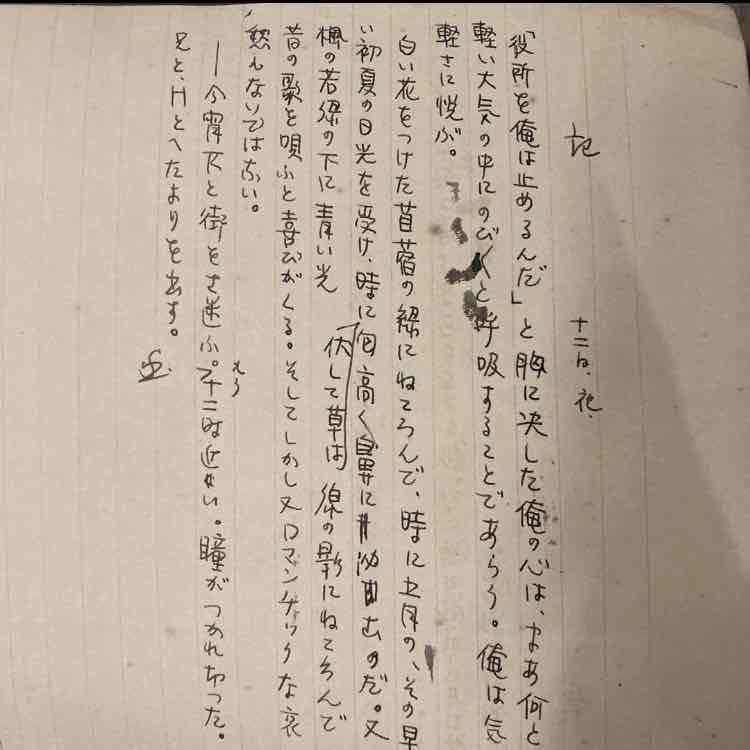 記
十二日、夜、
「役所を俺は止めるんだ」と胸に決した俺の心は、まあ何と
軽い大気の中にのび〱と呼吸することであらう。俺は気
軽さに悦ぶ。
白い花をつけた苜蓿の緑にねころんで、時に五月の、その早
い初夏の日光を受け、時に伏して草は匂高く鼻に
むのだ。又
楓の若緑の下に青い光
線の影にねころんで
昔の歌を唄ふと喜びがくる。そしてしかし又ロマンチックな哀
愁もないではない。
―今宵Kと街をさ迷ふ。もう十二時近い。瞳がつかれ切つた。
兄と、Hとへたよりを出す。